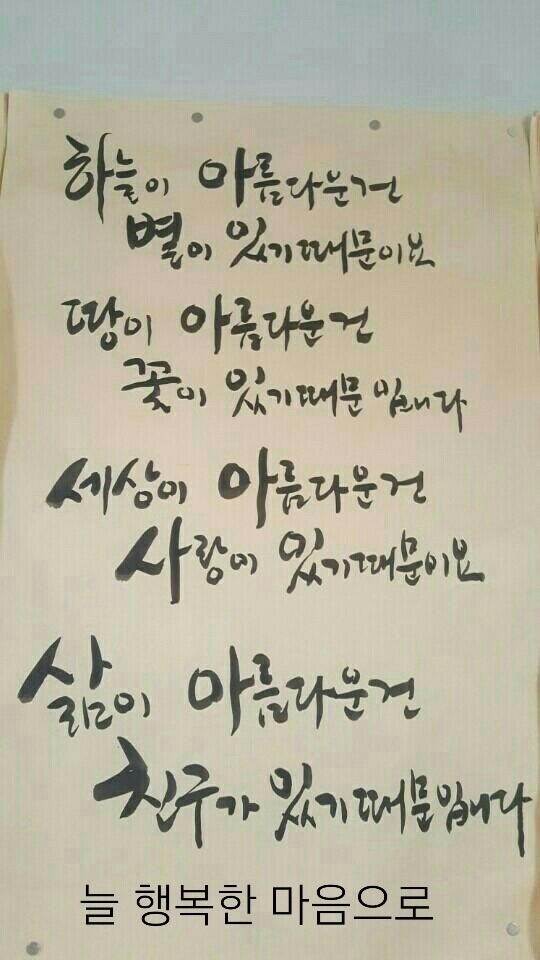 하늘이 아름다운건
별이 있기때문이요
땅이 아름다운건
꽃이 있기때문입니다
세상이 아름다운건
사랑이 있기때문이요
삶이 아름다운건
친구가 있기때문입니다
늘 행복한 마음으로